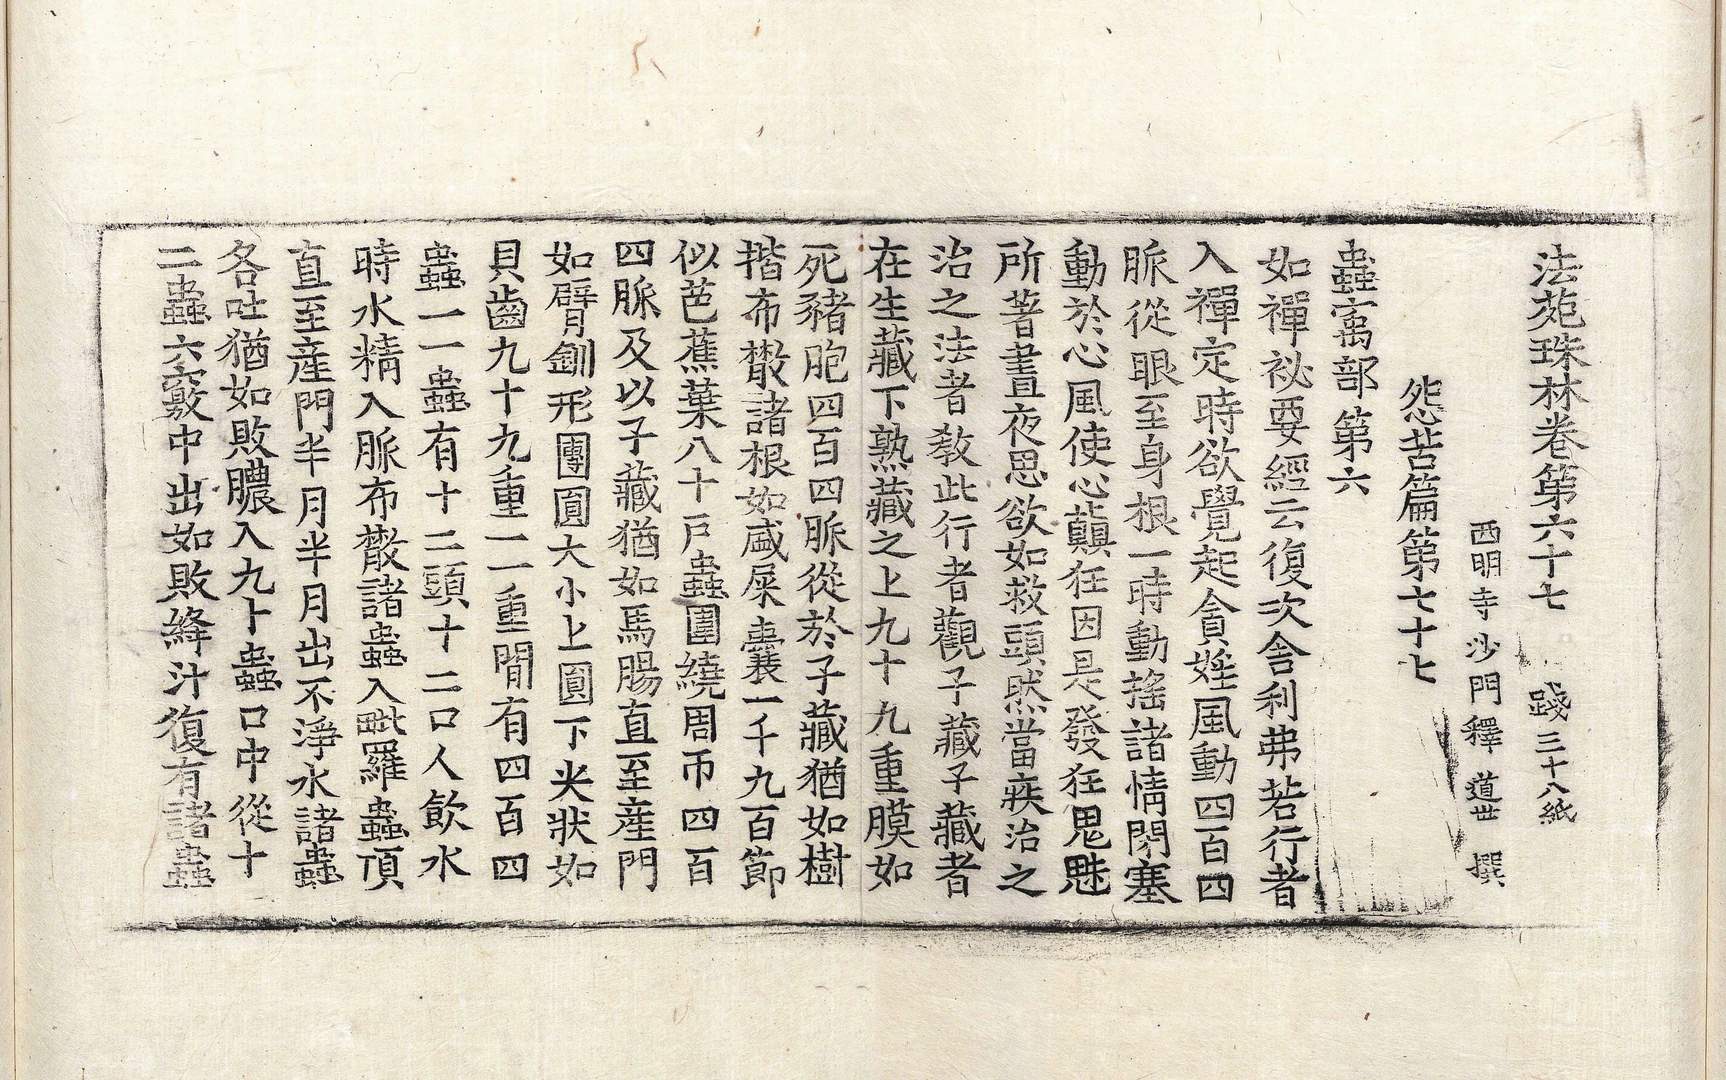 法苑珠林卷第六十七　踐　三十八紙
西明寺沙門釋　道世　撰
怨苦篇第七十七
蟲㝢部第六
如禪祕要經云復次舍利弗若行者
入禪定時欲覺起貪婬風動四百四
脈從眼至身根一時動搖諸情閉塞
動於心風使心顚狂因是發狂鬼魅
所著晝夜思欲如救頭然當疾治之
治之法者教此行者觀子藏子藏者
在生藏下熟藏之上九十九重膜如
死豬胞四百四脈從於子藏猶如樹
揩布散諸根如盛屎囊一千九百節
似芭蕉葉八十戶蟲圍繞周帀四百
四脈及以子藏猶如馬腸直至産門
如臂釧形團圓大小上圓下尖狀如
貝齒九十九重一一重閒有四百四
蟲一一蟲有十二頭十二口人飲水
時水精入脈布散諸蟲入毗羅蟲頂
直至産門半月半月出不淨水諸蟲
各吐猶如敗膿入九十蟲口中從十
二蟲六竅中出如敗絳汁復有諸蟲